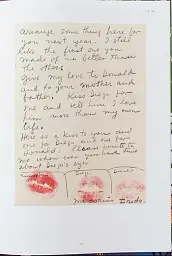 arrange something here for
you next year. I still
like the first one you
made of me better than
the others
Give my love to Donald
and to your mother and
father. Kiss Diego for
me and tell him I love
him more than my own
life.
Here is a kiss for you and
one for Diego and one for
Donald. Please write to
me when ever you have time
about Diego's eyes.
Diego
Donald